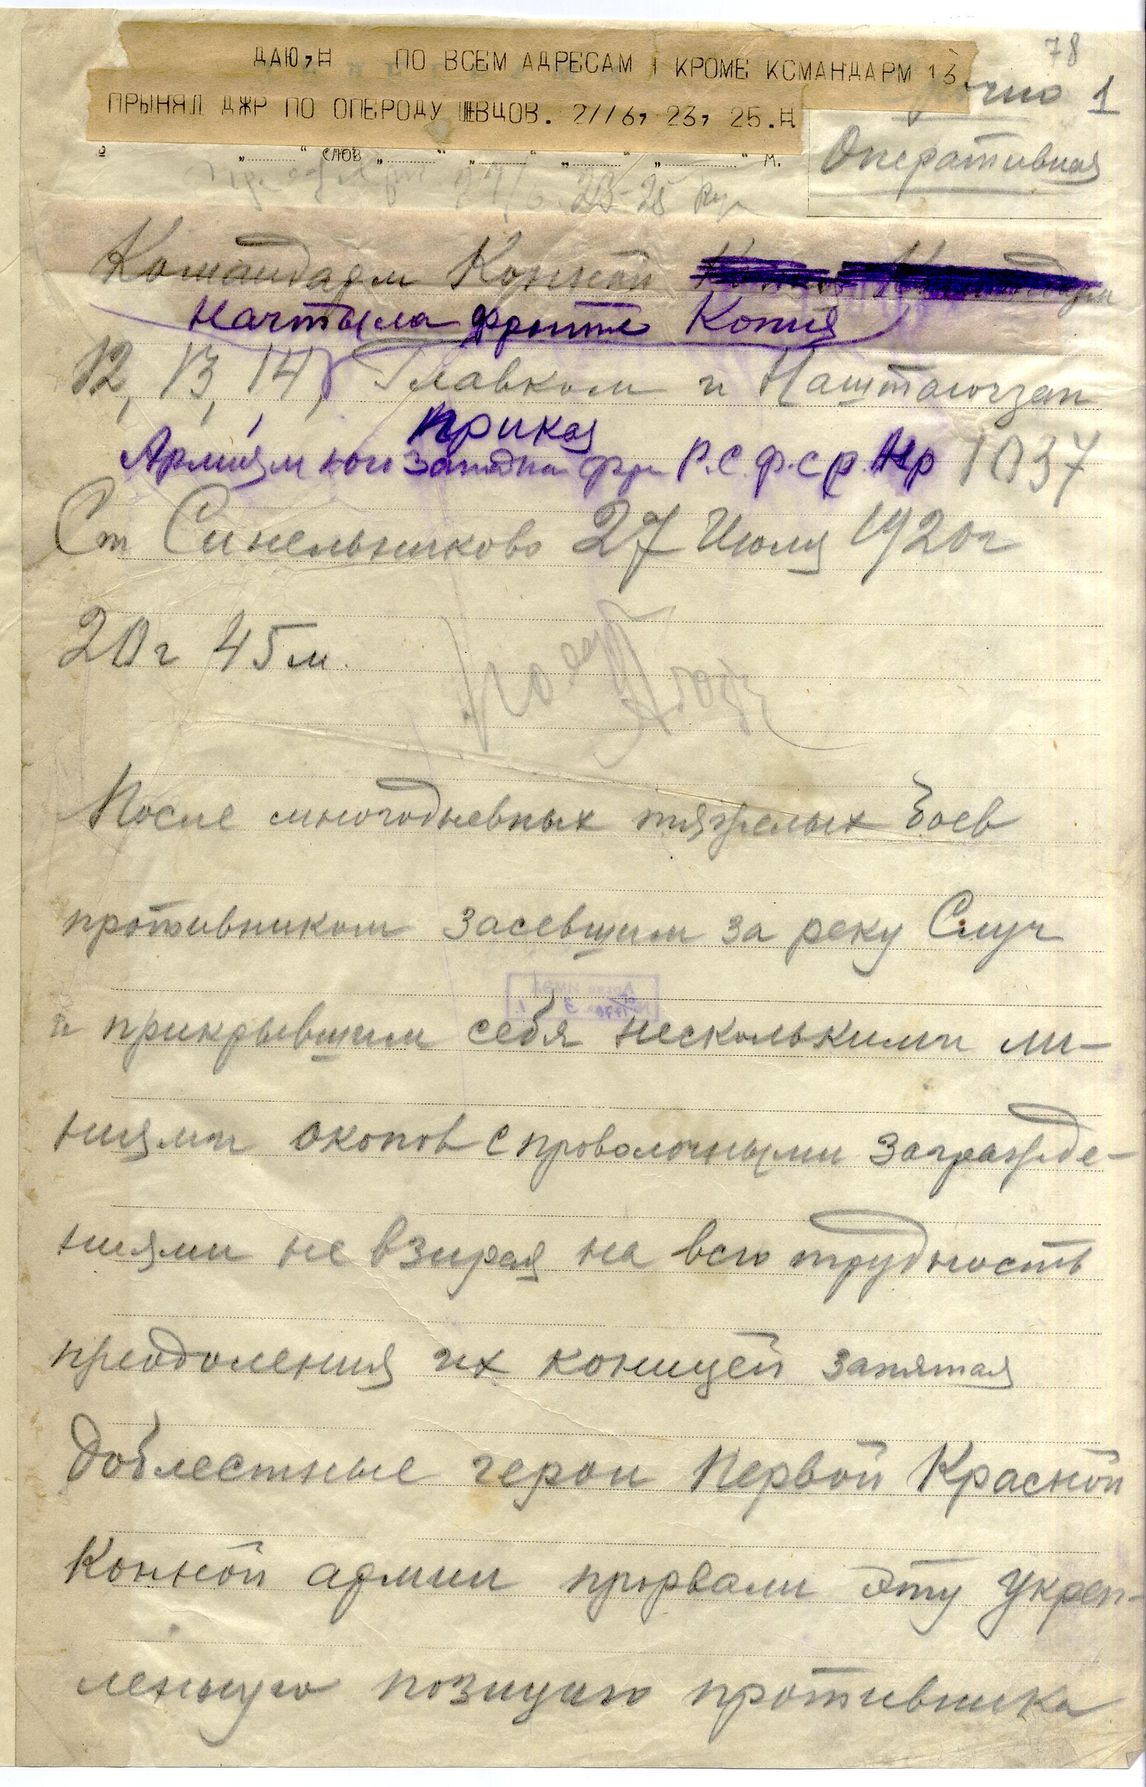 78
ДАЮ,Н ПО ВСЕМ АДРЕСАМ КРОМЕ КСМАНДАРМ 13.
ПРЫНЯЛ ДЖР ПО ОПЕРОДУ ШЕВЦОВ. 27/6, 23, 25.Н
1
Оперативная
„ “ слов „ “ „ “ „ “ „ “ м.
23-25
Командарм Конной
Начтыла фронта Копия
12, 13, 14, Главком и Наштаюгзап
Приказ
Армиям юго западн фр Р.С.Ф.С.Р. Нр 1037
Ст Синельниково 27 Июля 1920г
20г 45м.
После многодневных тяжелых боев
противником засевшим за реку Случ
и прикрывшим себя несколькими ли-
ниями окопов с проволочными загражде-
ниями не взирая на всю трудность
преодоления их конницей запятая
доблестные герои Первой Красной
Конной армии прорвали эту укреп-
ленную позицию противника